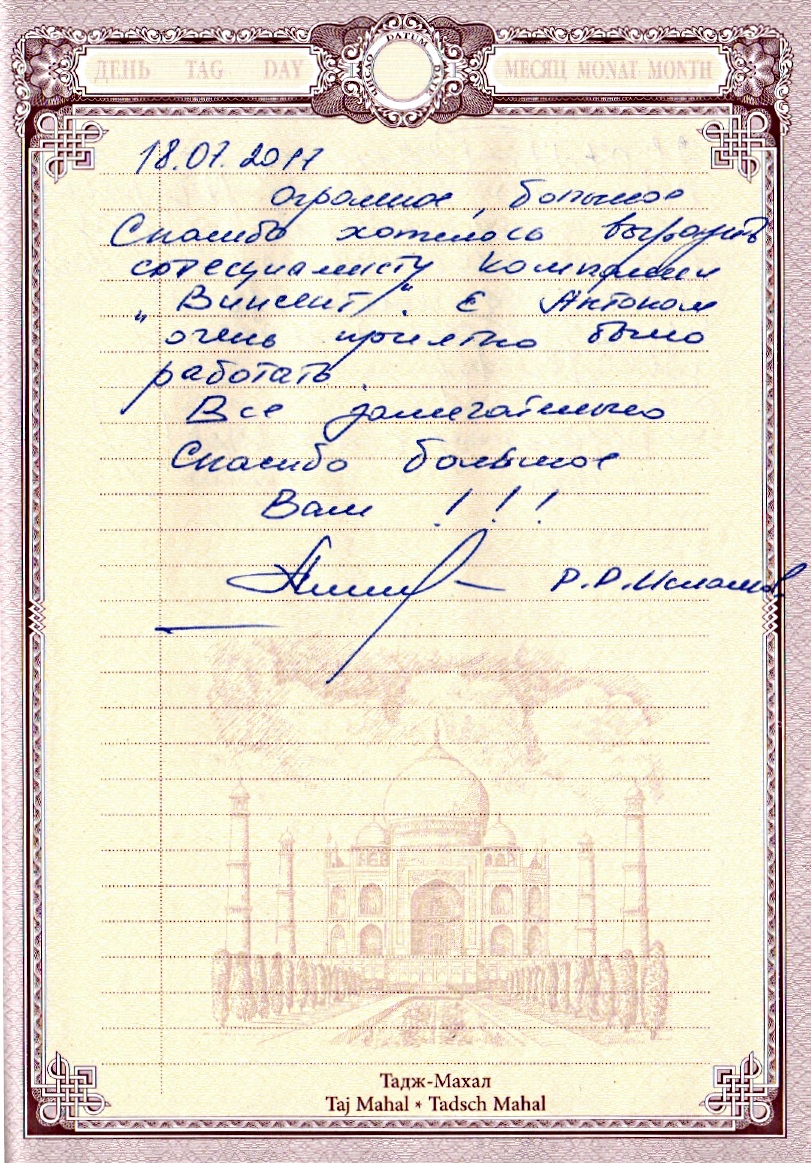 ДЕНЬ TAG DAY ЧИСЛО DATUM DATE МЕСЯЦ MONAT MONTH
18.07.2017
Огромное, большое
Спасибо хотелось выразить
специалисту компании
„Винсент". С Антоном
очень приятно было
работать.
Все замечательно
Спасибо большое
Вам !!!
Р.Р.Исламов
Тадж-Махал
Taj Mahal * Tadsch Mahal